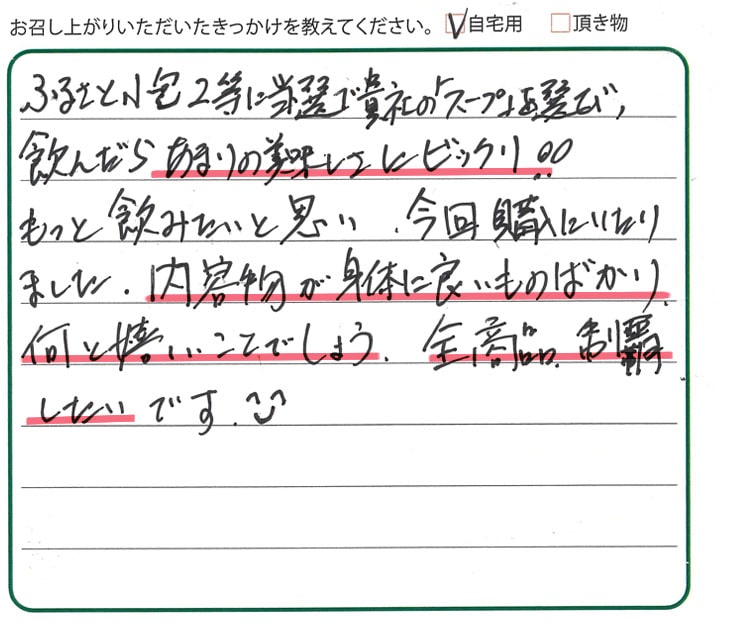 お召し上がりいただいたきっかけを教えてください。 ☑自宅用 □頂き物
ふるさと小包2等に当選で貴社の「スープ」を選び、
飲んだら あまりの美味しさにビックリ!!
もっと飲みたいと思い、今回購入にいたり
ました。内容物が身体に良いものばかり、
何と嬉しいことでしょう。全商品、制覇
したいです。